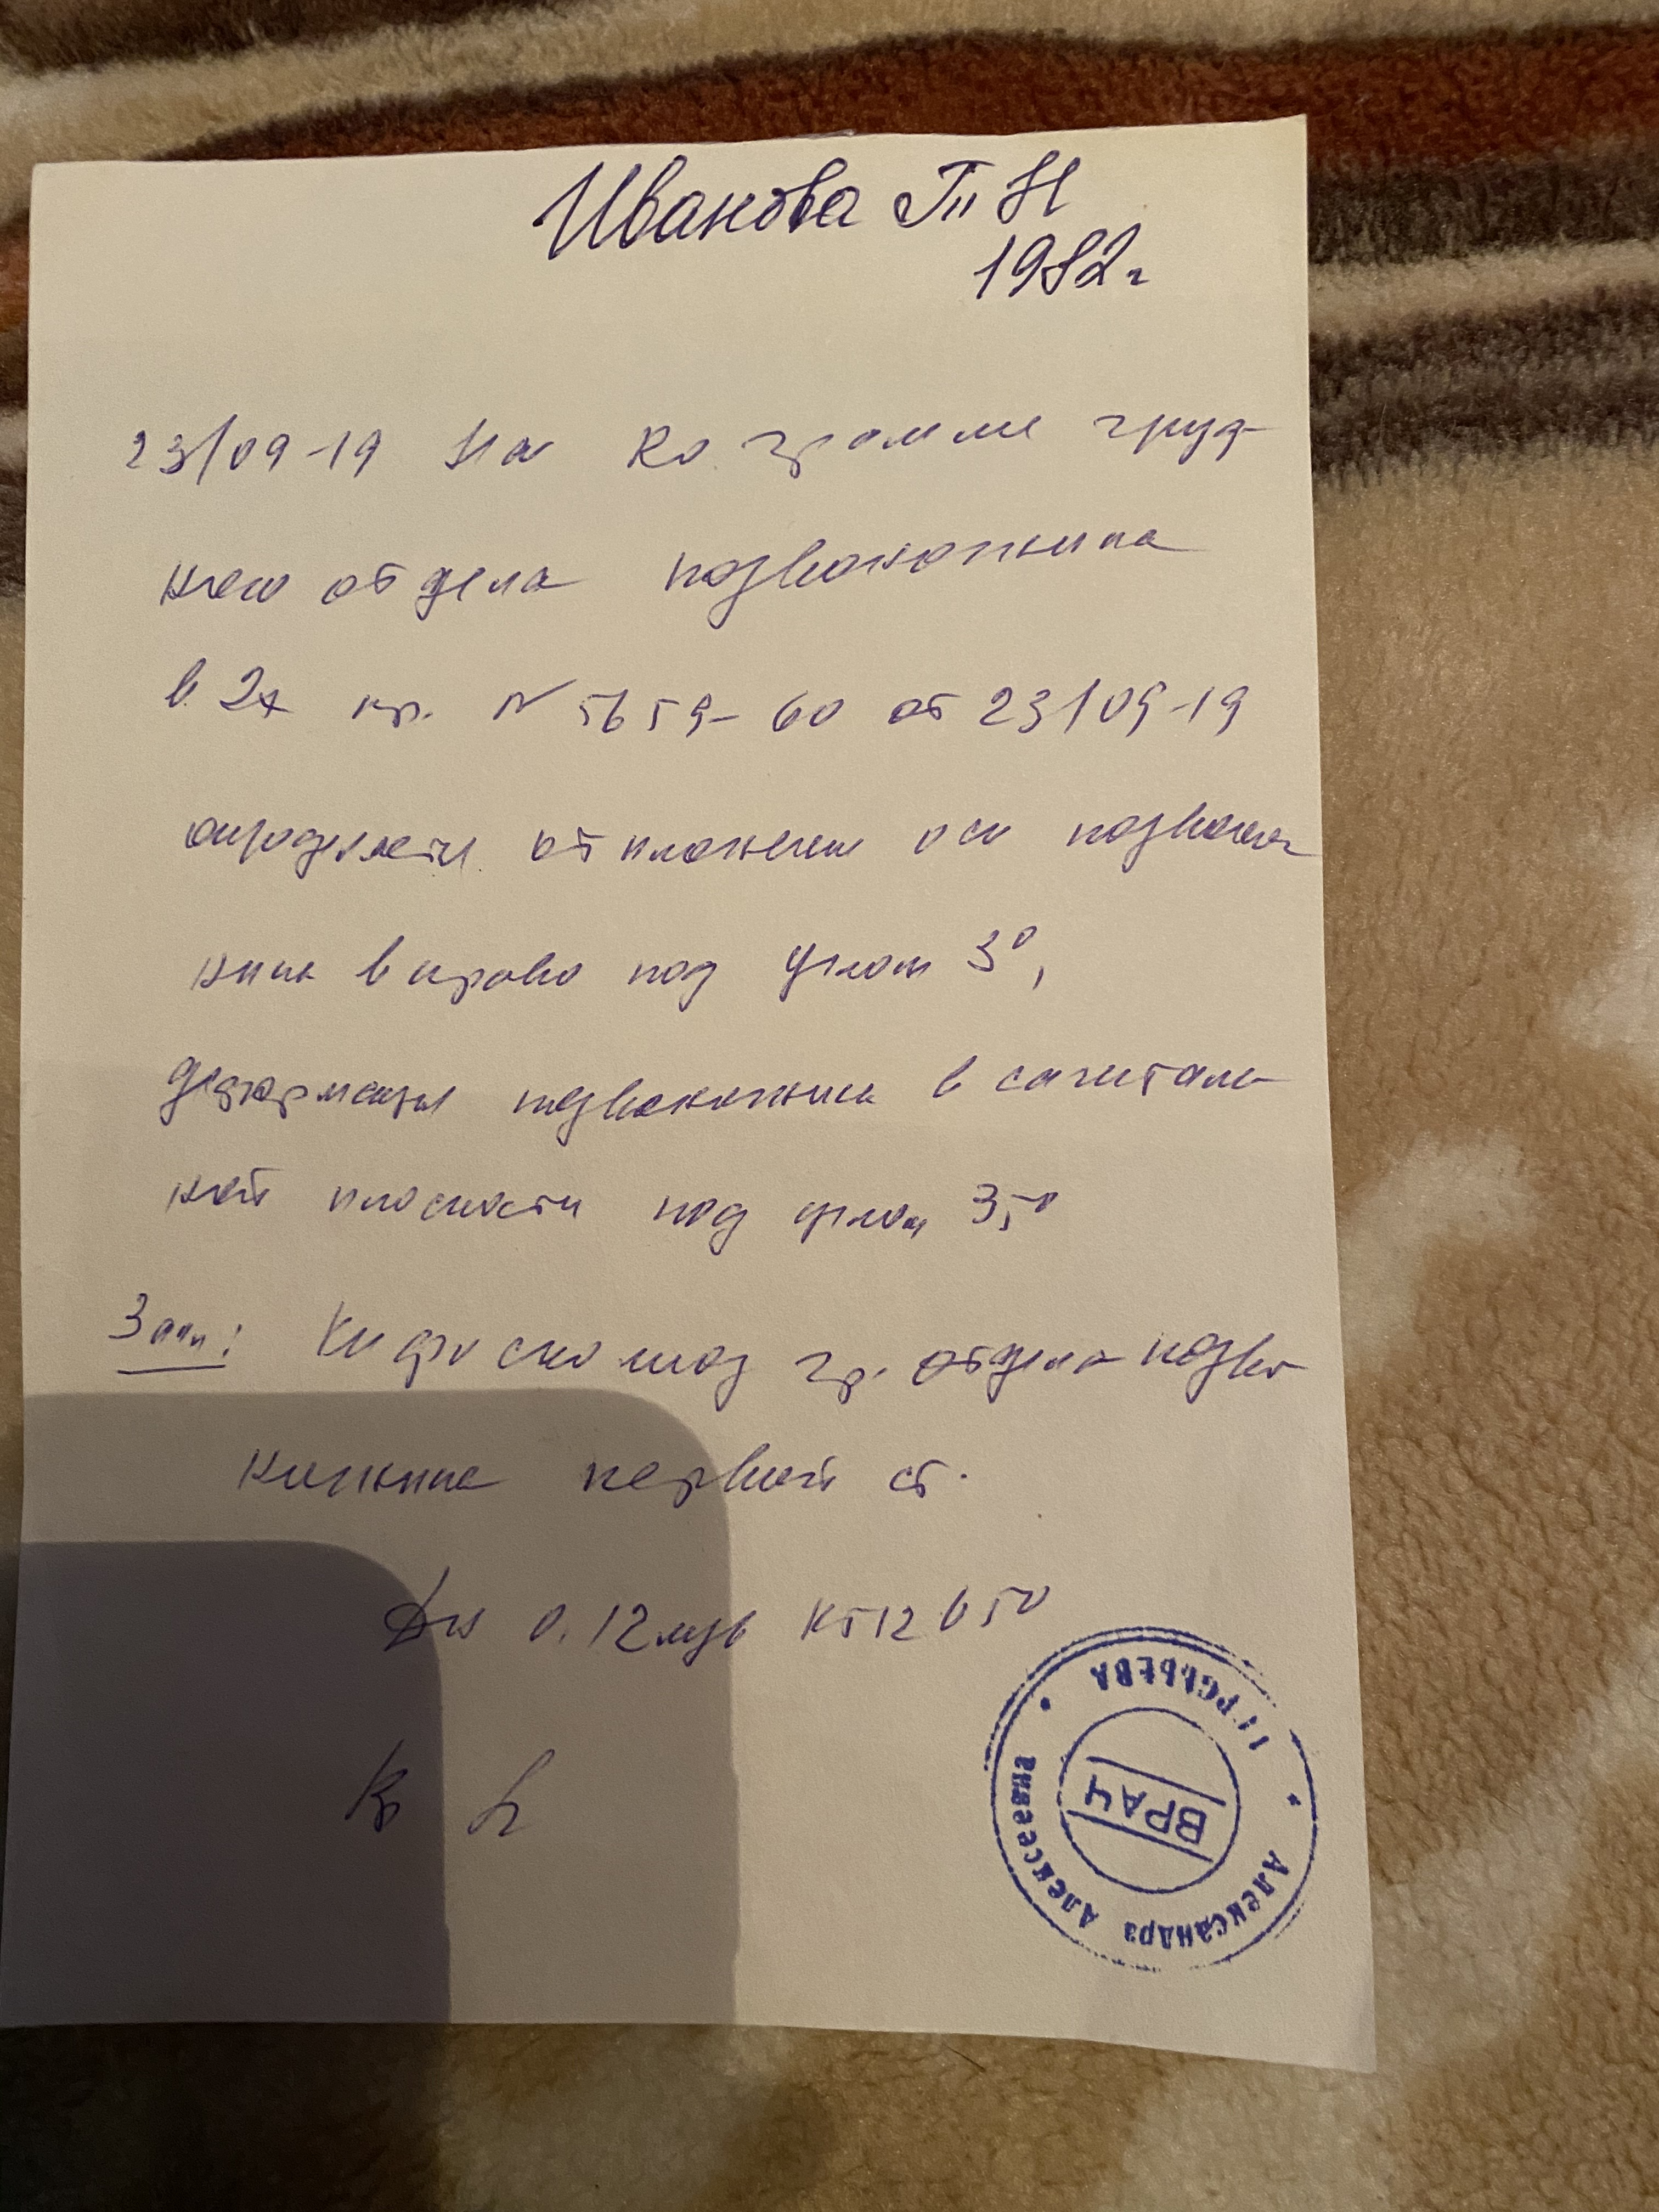 Иванова Т Н
1982г
23/09-19 На Ro грамме груд
ного отдела позвоночника
в 2х пр. N 5659-60 от 23/09-19
определяется отклонение оси позвоноч
ника вправо под углом 3°,
деформация позвоночника в сагитталь
ной плоскости под углом
Закл: Кифосколиоз гр. отдела позво
ночника первой ст.
0.12мзв
ВРАЧ
Александра Алексеевна